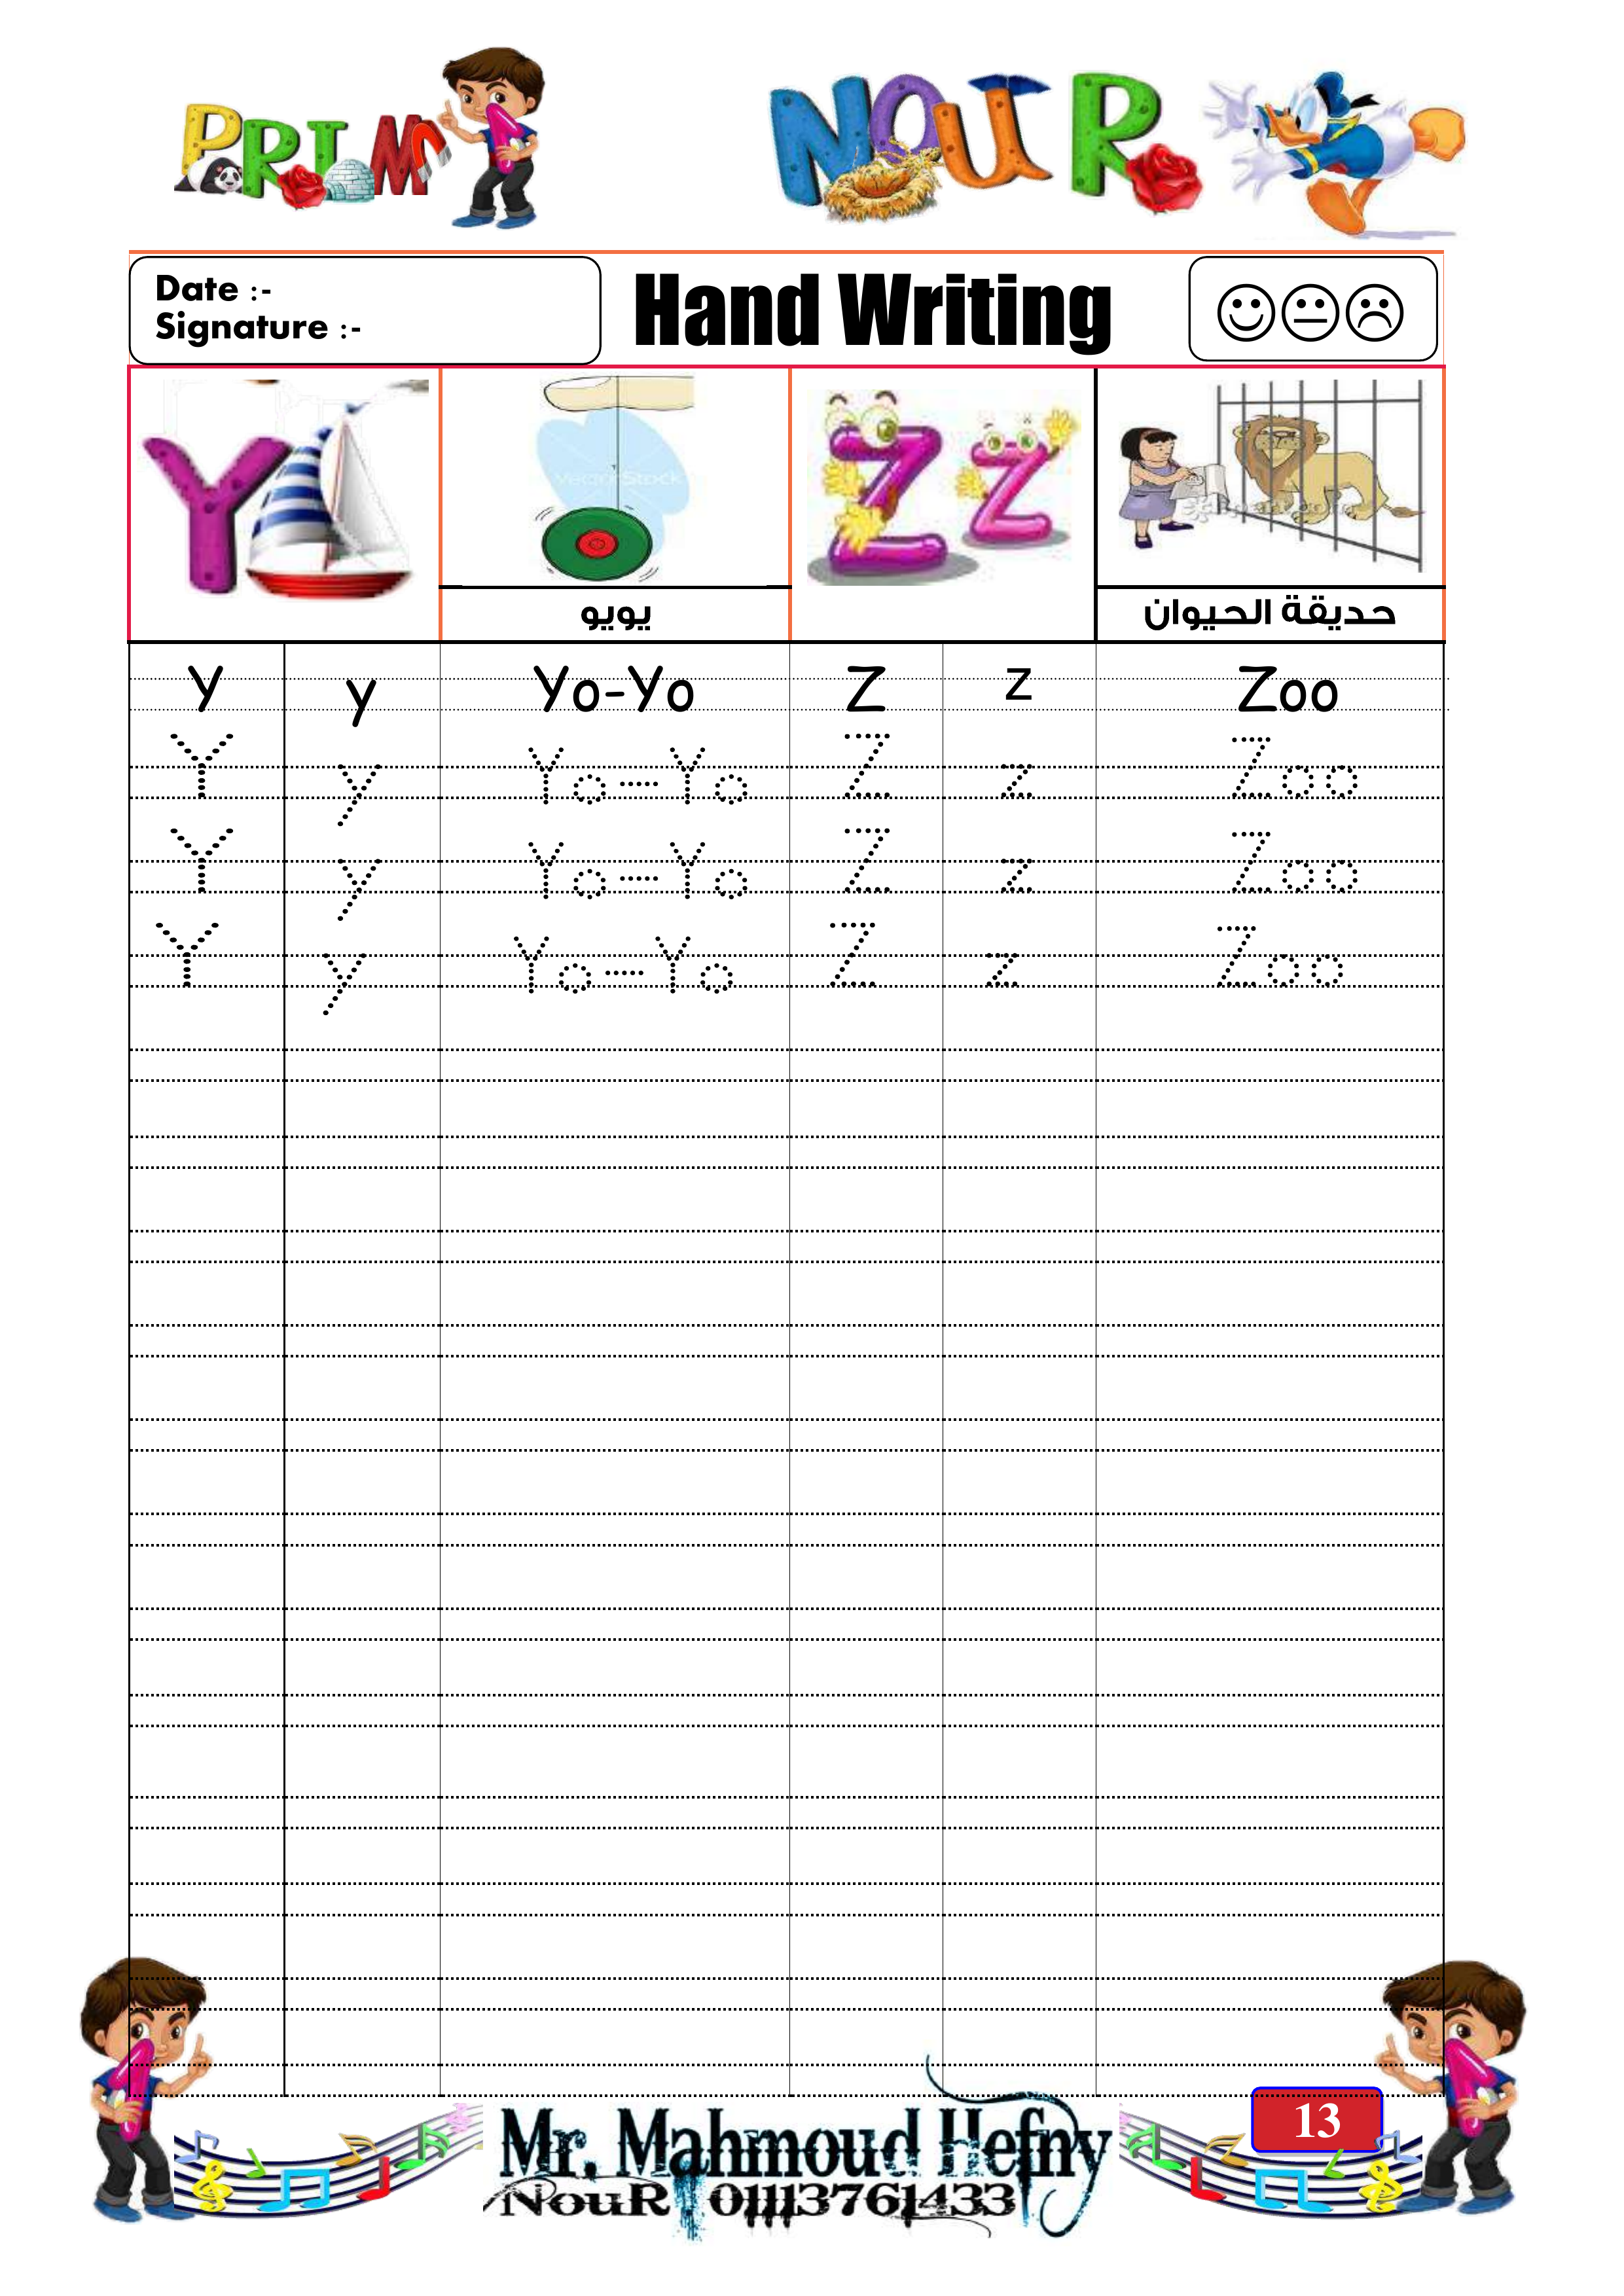 PRIM 1 NOUR
Date :-
Signature :-
Hand Writing
Y
VectorStock
Z z
يويو
حديقة الحيوان
Y y Yo-Yo Z z Zoo
Y y Yo-Yo Z z Zoo
Y y Yo-Yo Z z Zoo
Y y Yo-Yo Z z Zoo
13
Mr. Mahmoud Hefny
NouR 01113761433